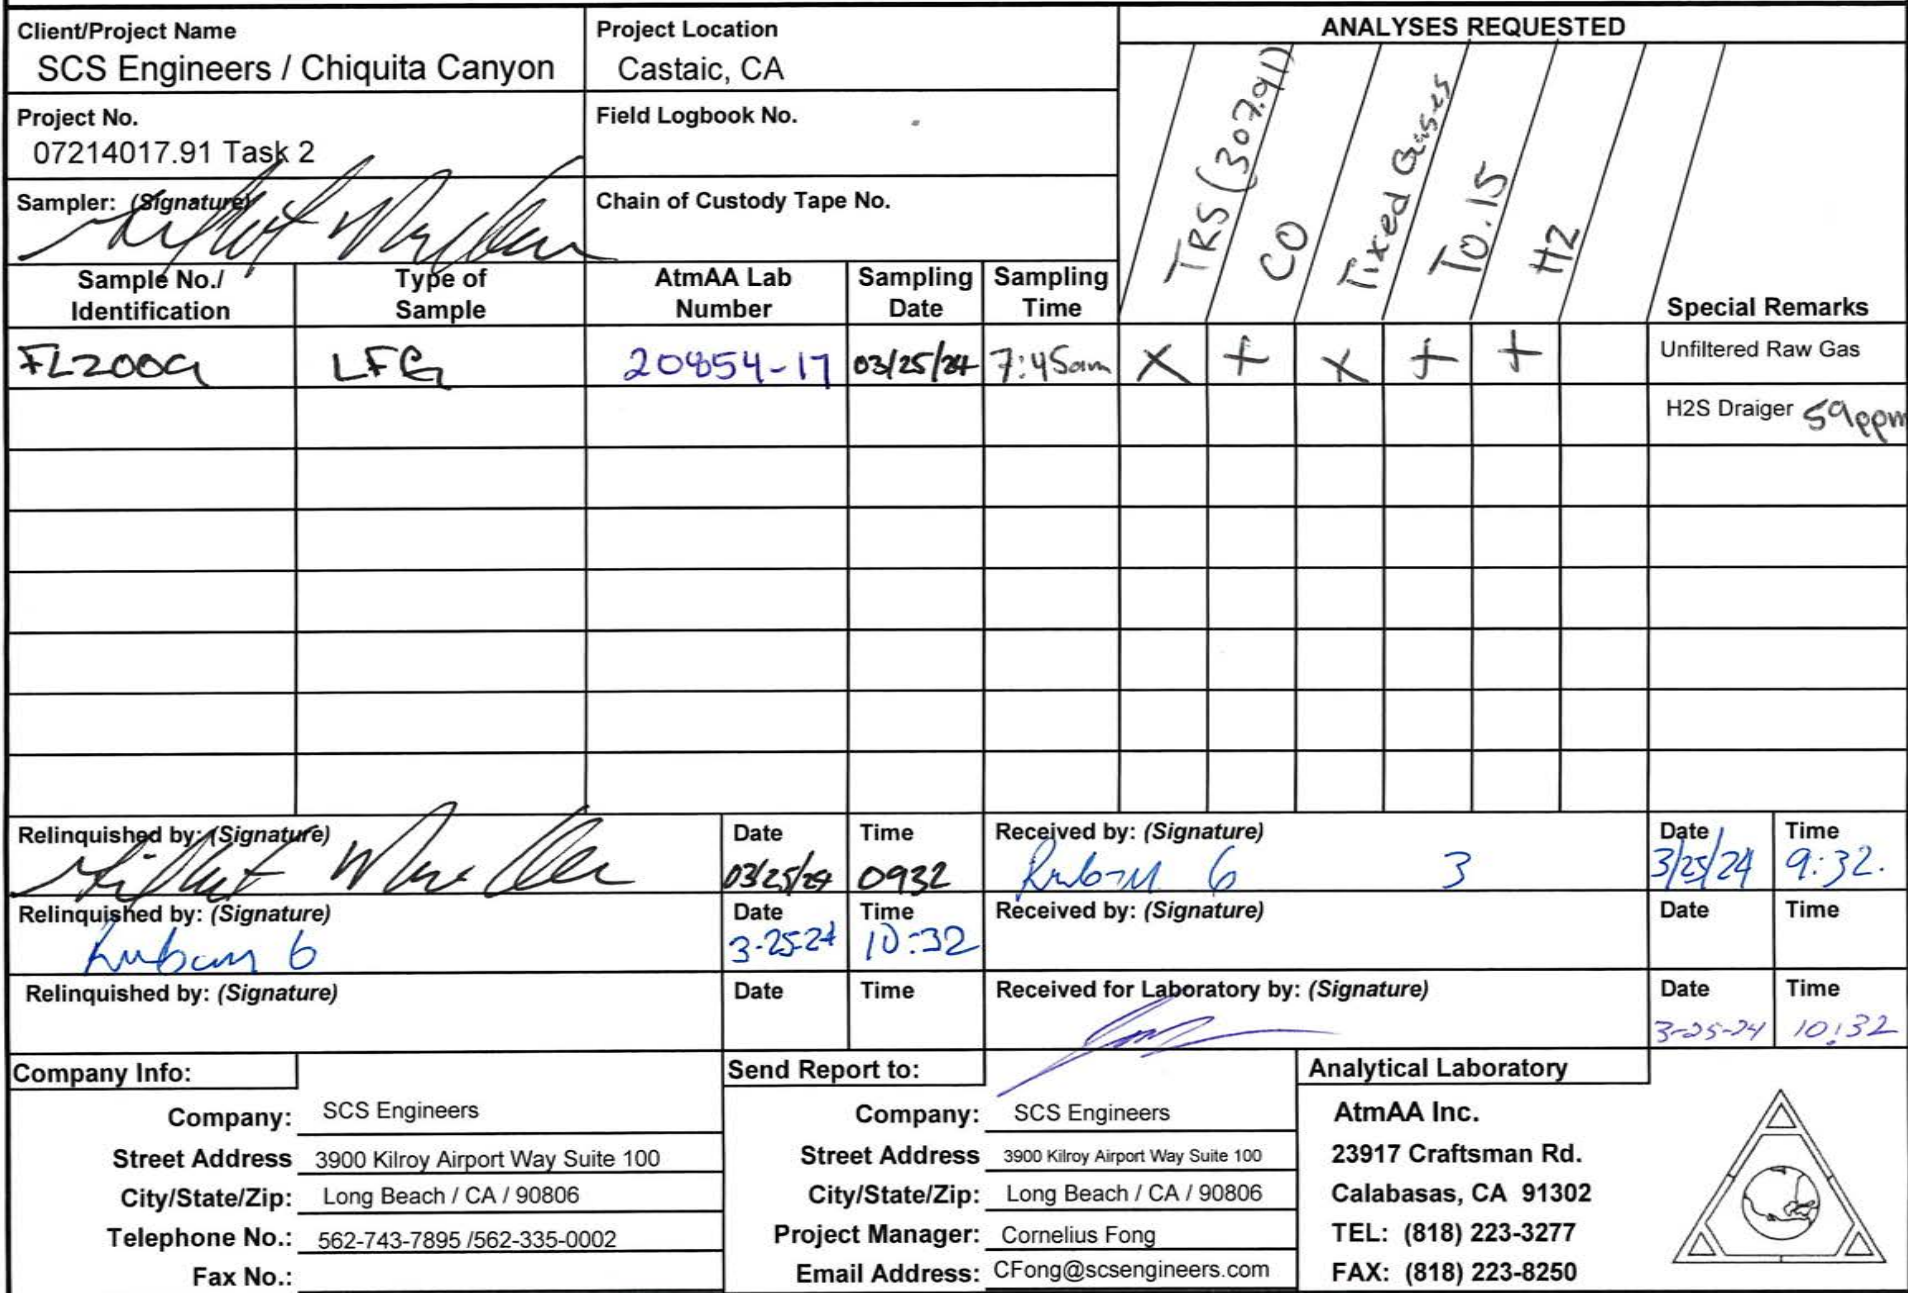 Client/Project Name
SCS Engineers / Chiquita Canyon
Project Location
Castaic, CA
ANALYSES REQUESTED
Project No.
07214017.91 Task 2
Field Logbook No.
Sampler: (Signature)
Chain of Custody Tape No.
TRS (307.91)
CO
Fixed Gases
TO.15
H2
Sample No./
Identification
Type of
Sample
AtmAA Lab
Number
Sampling
Date
Sampling
Time
Special Remarks
FL2009 LFG 20854-17 03/25/24 7:45am X + X + + Unfiltered Raw Gas
H2S Draiger 59ppm
Relinquished by: (Signature)
Date
03/25/24
Time
0932
Received by: (Signature)
3
Date
3/25/24
Time
9:32.
Relinquished by: (Signature)
Date
3-25-24
Time
10:32
Received by: (Signature)
Date
Time
Relinquished by: (Signature)
Date
Time
Received for Laboratory by: (Signature)
Date
3-25-24
Time
10:32
Company Info:
Company: SCS Engineers
Street Address 3900 Kilroy Airport Way Suite 100
City/State/Zip: Long Beach / CA / 90806
Telephone No.: 562-743-7895 /562-335-0002
Fax No.:
Send Report to:
Company: SCS Engineers
Street Address 3900 Kilroy Airport Way Suite 100
City/State/Zip: Long Beach / CA / 90806
Project Manager: Cornelius Fong
Email Address: CFong@scsengineers.com
Analytical Laboratory
AtmAA Inc.
23917 Craftsman Rd.
Calabasas, CA 91302
TEL: (818) 223-3277
FAX: (818) 223-8250